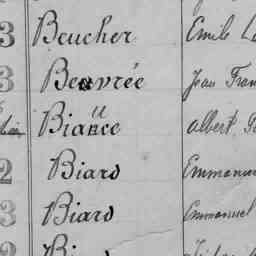 3 Beucher Emile
3 Beuvrée Jean Fran
Biance Albert
2 Biard Emmanue
3 Biard Emmanuel
2